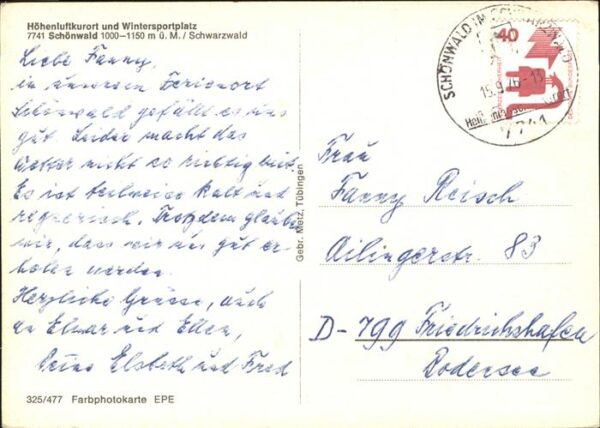 Höhenluftkurort und Wintersportplatz
7741 Schönwald 1000–1150 m ü. M. / Schwarzwald
Liebe Fanny,
in unserem Ferienort
Schönwald gefällt es uns
gut. Leider macht das
Wetter nicht so richtig mit.
Es ist teilweise kalt und
regnerisch. Trotzdem glauben
wir, dass wir uns gut er-
holen werden.
Herzliche Grüsse, auch
an Elmar und Ellen,
Deine Elsbeth und Fred
325/477 Farbphotokarte EPE
Gebr. Metz, Tübingen
SCHÖNWALD IM SCHWARZWALD
15.9.76-18
7741
40
Frau
Fanny Reisch
Ailingerstr. 83
D-799 Friedrichshafen
Bodensee